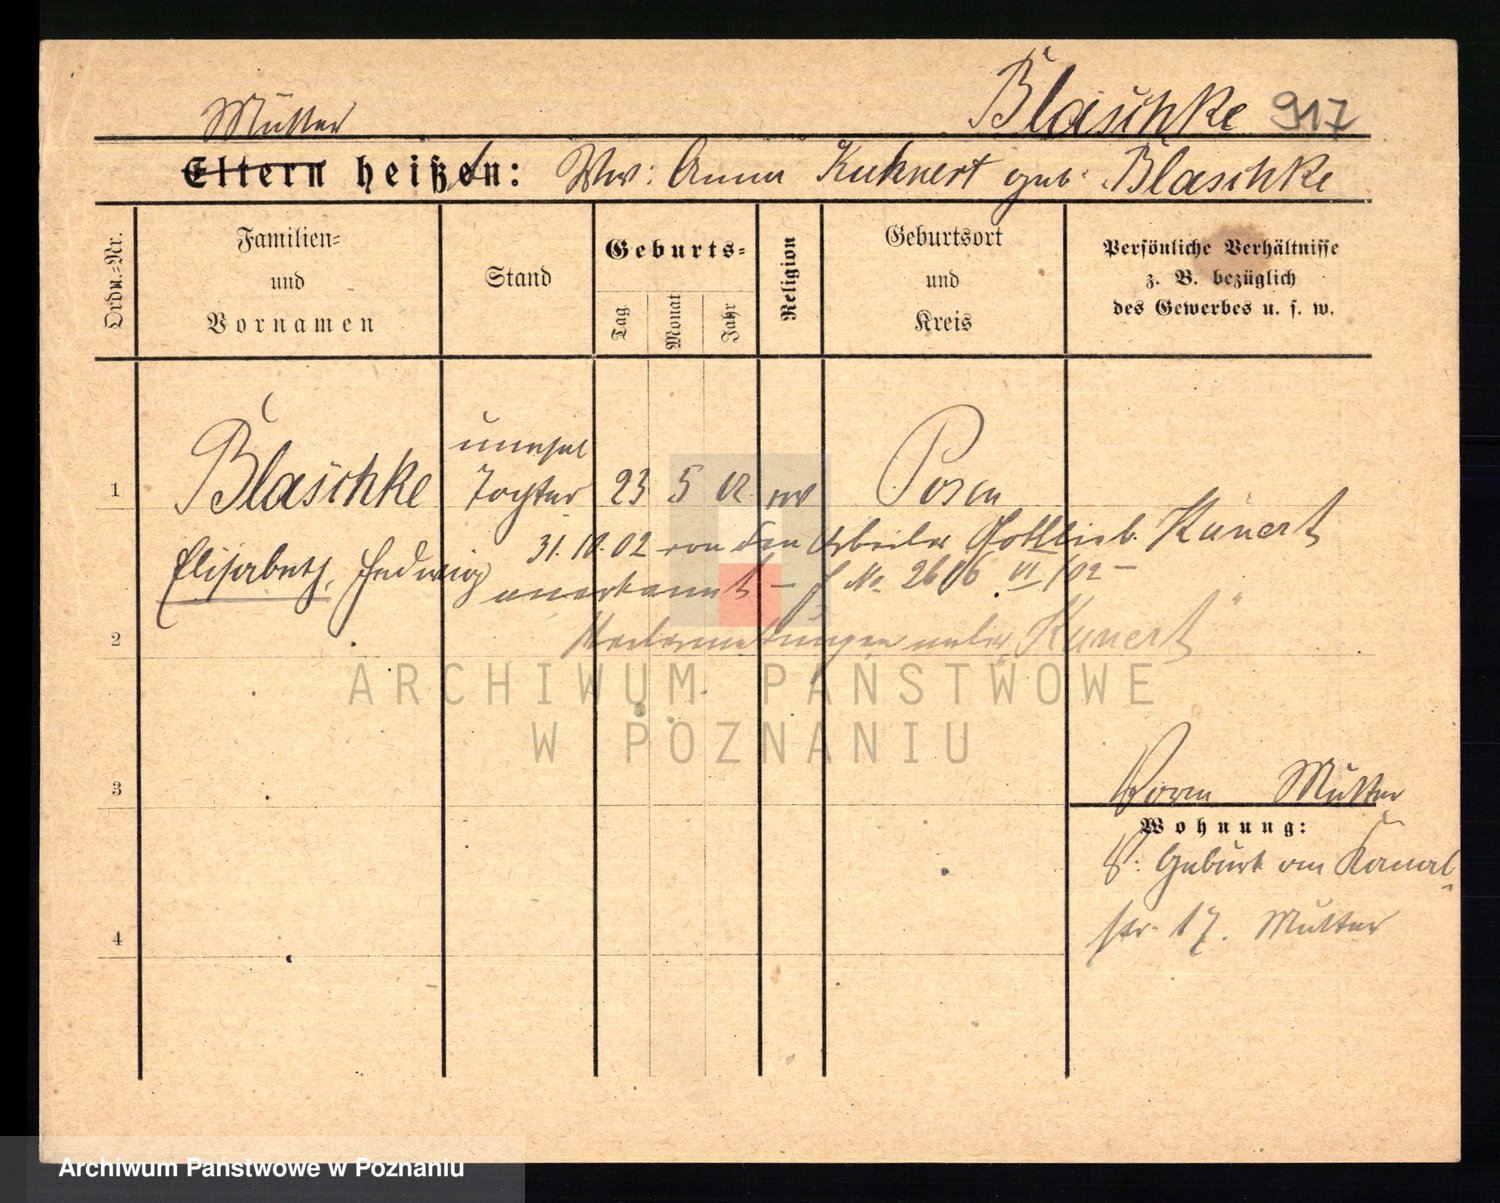 Mutter
Blaschke 917
Eltern heißen: Ww: Anna Kuhnert geb. Blaschke
Ordn.-Nr.
Familien-
und
Vornamen
Stand
Geburts-
Tag
Monat
Jahr
Religion
Geburtsort
und
Kreis
Persönliche Verhältnisse
z. B. bezüglich
des Gewerbes u. s. w.
1
Blaschke
unehel
Tochter
23 5 02
Posen
Elisabeth, Hedwig
31. 10. 02 von den Arbeiter Gottlieb Kunert
anerkannt – No. 2616 VI/02 –
2
unter „Kunert“
ARCHIWUM PAŃSTWOWE
W POZNANIU
3
Mutter
Wohnung:
Geburt am Kanal-
str. 17. Mutter
4
Archiwum Państwowe w Poznaniu